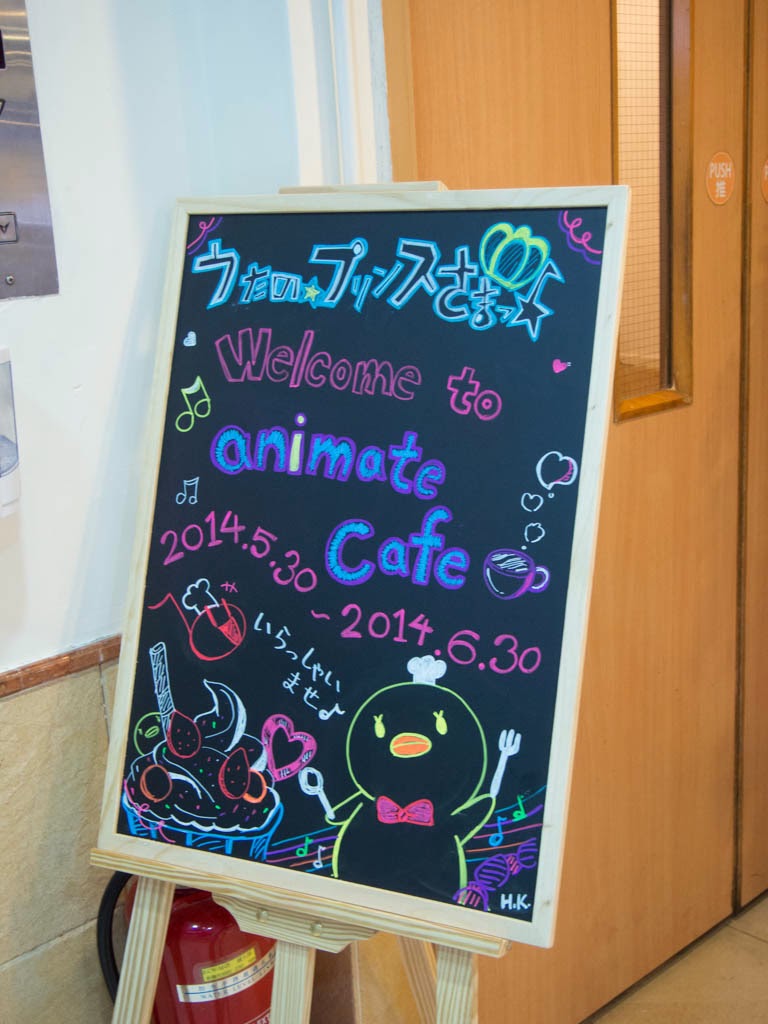 うたの☆プリンスさまっ♪
Welcome to
animate
Cafe
2014.5.30
~2014.6.30
いらっしゃい
ませ♪
H.K.
PUSH
推
WATER LEVEL